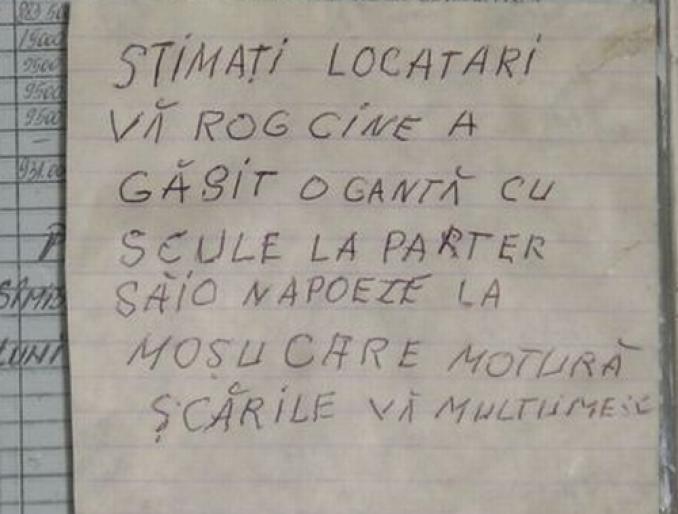 883 50
15000
9500
9500
9500
931.00
STIMAȚI LOCATARI
VĂ ROG CINE A
GĂSIT O GANTĂ CU
SCULE LA PARTER
SĂIO NAPOEZE LA
MOȘU CARE MOTURĂ
ȘCĂRILE VĂ MULTUMESC
LUNI